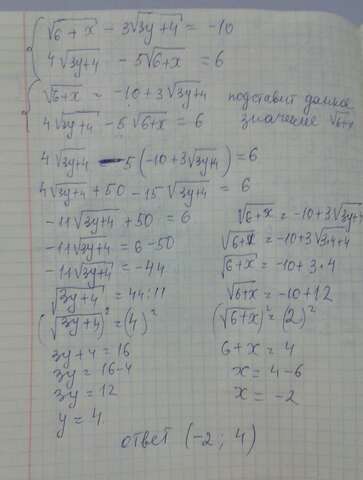 √(6+x) - 3√(3y+4) = -10
4√(3y+4) - 5√(6+x) = 6
√(6+x) = -10+3√(3y+4) подставит данное
4√(3y+4) - 5√(6+x) = 6 значение √(6+x)
4√(3y+4) - 5(-10+3√(3y+4)) = 6
4√(3y+4) + 50 - 15√(3y+4) = 6
-11√(3y+4) + 50 = 6
-11√(3y+4) = 6-50
-11√(3y+4) = -44
√(3y+4) = 44:11
(√(3y+4))² = (4)²
3y+4 = 16
3y = 16-4
3y = 12
y = 4
√(6+x) = -10+3√(3y+4)
√(6+x) = -10+3√(3·4+4)
√(6+x) = -10+3·4
√(6+x) = -10+12
(√(6+x))² = (2)²
6+x = 4
x = 4-6
x = -2
ответ (-2; 4)